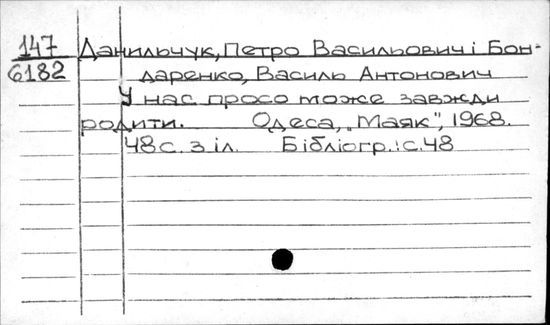 147
6182
Данильчук, Петро Васильович і Бон-
даренко, Василь Антонович
У нас просо може завжди
родити. Одеса, „Маяк", 1968.
48 с. з іл. Бібліогр.: с. 48